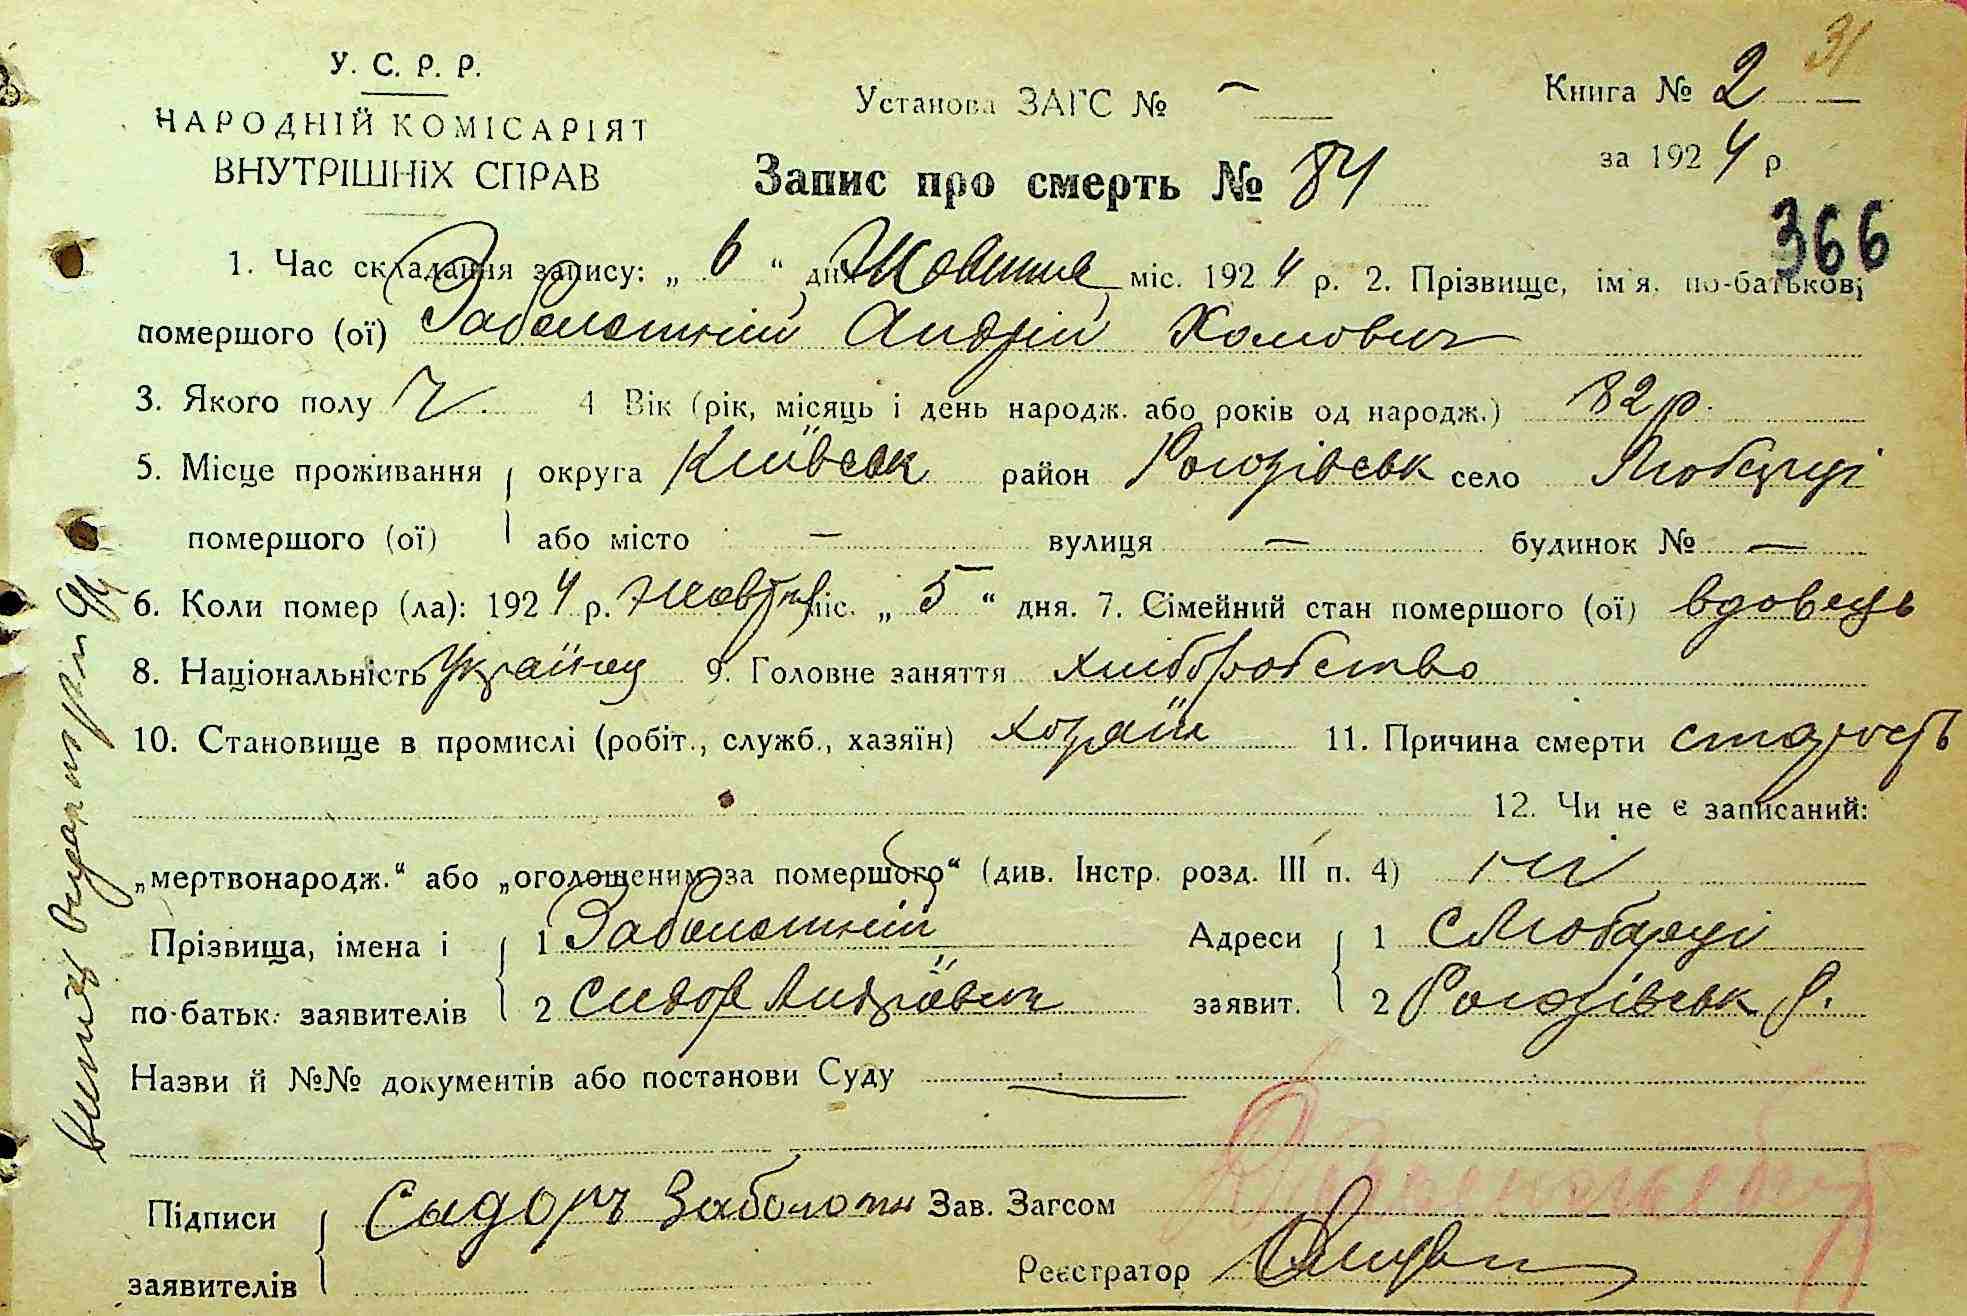 31
У. С. Р. Р.
НАРОДНІЙ КОМІСАРІЯТ
ВНУТРІШНІХ СПРАВ
Установа ЗАГС № —
Книга № 2 —
за 1924 р
Запис про смерть № 84
366
1. Час складання запису: „ 6 “ дня Жовтня міс. 1924 р. 2. Прізвище, ім'я, по-батькові
помершого (ої) Заболотній Андрій Хомович
3. Якого полу Ч. 4 Вік (рік, місяць і день народж. або років од народж.) 82 р.
5. Місце проживання округа Київськ район Рогозівськ село Любарці
помершого (ої) або місто — вулиця — будинок № —
6. Коли помер (ла): 1924 р. Жовтн міс. „ 5 “ дня. 7. Сімейний стан помершого (ої) вдовець
8. Національність Українец 9. Головне заняття хліборобство
10. Становище в промислі (робіт., служб., хазяїн) хозяїн 11. Причина смерти старость
12. Чи не є записаний:
„мертвонародж.“ або „оголошеним за помершого“ (див. Інстр. розд. III п. 4) ні
Прізвища, імена і 1 Заболотній Адреси 1 с Любарці
по-батьк. заявителів 2 Сидор Андрієвич заявит. 2 Рогозівськ р.
Назви й №№ документів або постанови Суду —
Підписи Сыдоръ Заболотн Зав. Загсом
заявителів Реєстратор